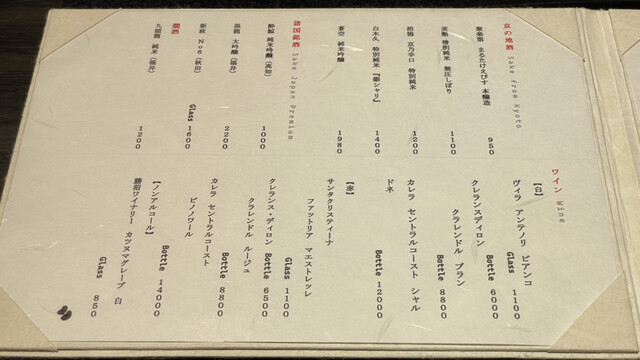 京の地酒 Sake from Kyoto
聚楽第 まるたけえびす 本醸造
950
英勲 特別純米 無圧しぼり
1100
招德 京乃辛口 特別純米
1200
白木久 特別純米 『銀シャリ』
1400
蒼空 純米吟醸
1980
諸国銘酒 Sake Japan Premium
酔鯨 純米吟醸 (高知)
1000
黒龍 大吟醸 (福井)
2200
新政 No6 (秋田)
Glass 1600
燗酒
九頭龍 純米 (福井)
1200
ワイン Wine
【白】
ヴィラ アンテノリ ビアンコ
Glass 1100
クレランスディロン
Bottle 6000
クラレンドル ブラン
Bottle 8800
カレラ セントラルコースト シャル
ドネ
Bottle 12000
【赤】
サンタクリスティーナ
ファットリア マエストレッレ
Glass 1100
クレランス・ディロン
Bottle 6500
クラレンドル ルージュ
Bottle 8800
カレラ セントラルコースト
ピノノワール
Bottle 14000
【ノンアルコール】
勝沼ワイナリー カツヌマグレープ 白
Glass 850